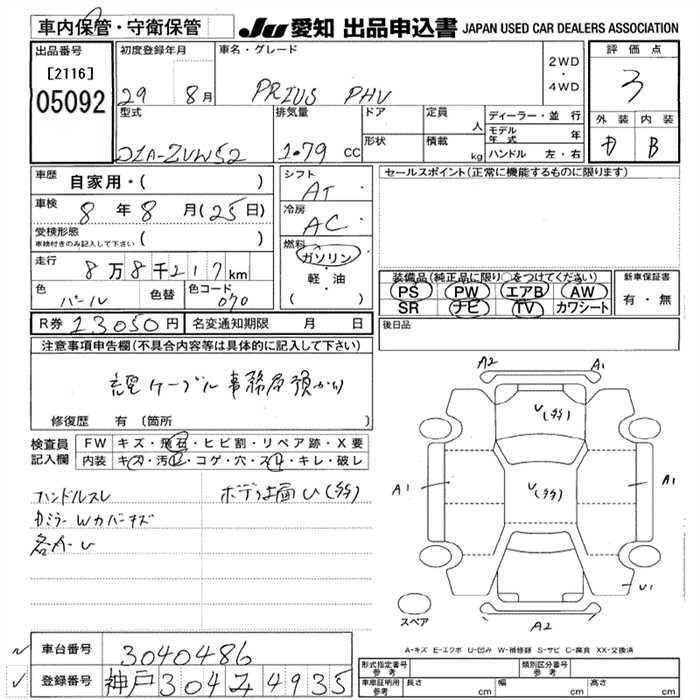 車内保管・守衛保管
JU 愛知 出品申込書 JAPAN USED CAR DEALERS ASSOCIATION
出品番号
[2116]
05092
初度登録年月
29 8月
車名・グレード
PRIUS PHV
2WD
・
4WD
評価点
3
外装 内装
D B
型式
DLA-ZVW52
排気量
1.79 cc
ドア
形状
定員
人
積載
kg
ディーラー・並行
モデル年式 年
ハンドル 左・右
車歴 自家用・( )
車検 8年8月(25日)
受検形態
車検付きのみ記入して下さい ( )
走行 8万8千217km
色 パール 色替 色コード 070
シフト
AT
冷房
AC
燃料
ガソリン
軽・油
( )
セールスポイント(正常に機能するものに限ります)
装備品(純正品に限り○をつけてください)
PS PW エアB AW
SR ナビ TV カワシート
新車保証書
有・無
後日品
R券 13050円 名変通知期限 月 日
注意事項申告欄(不具合内容等は具体的に記入して下さい)
充電ケーブル事務局預かり
修復歴 有 〔箇所
検査員
記入欄
FW キズ・飛石・ヒビ割・リペア跡・X要
内装 キズ・汚れ・コゲ・穴・スレ・キレ・破レ
ハンドルスレ
ボデー上面U(多)
ドミラーWカバーキズ
各A-U
A2 A1
U(多)
A1 U(多) A1
U1
A2
スペア
A-キズ E-エクボ U-凹み W-補修跡 S-サビ C-腐食 XX-交換済
車台番号 3040486
登録番号 神戸304み4935
形式指定番号
参考
類別区分番号
参考
車庫証明用
参考
長さ cm 幅 cm 高さ cm